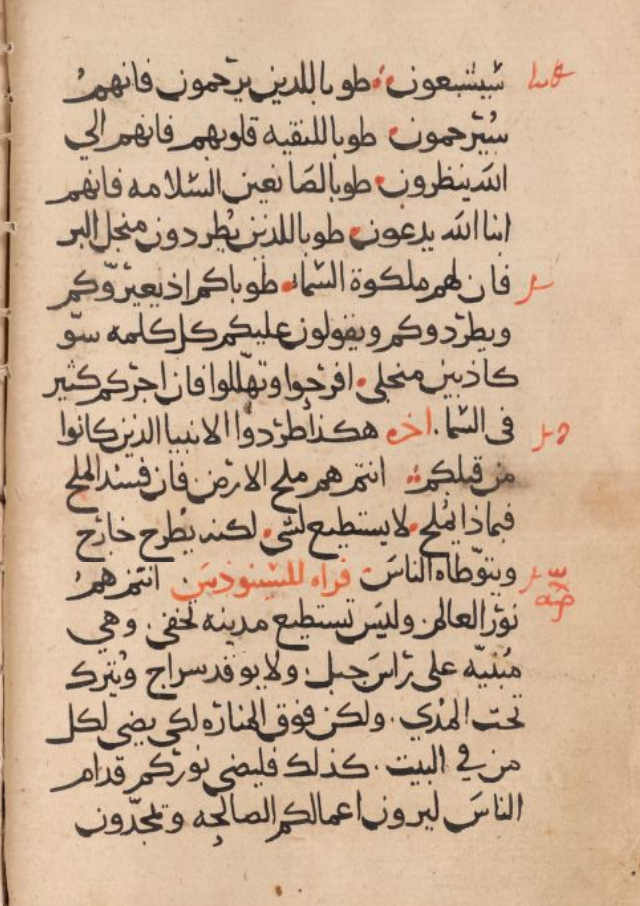 سيشبعون طوبا للدين يرحمون فانهم
سيرحمون طوبا للنقيه قلوبهم فانهم الي
الله ينظرون طوبا لصانعين السلامه فانهم
ابنا الله يدعون طوبا للذين يُطردون منجل البر
فان لهم ملكوة السما طوباكم اذ يعيروكم
ويطردوكم ويقولون عليكم كل كلمه سوّ
كاذبين منجلي افرحوا وتهللوا فان اجركم كثير
في السما اخره هكذا طردوا الانبيا الذين كانوا
من قبلكم انتم هم ملح الارض فان فسد الملح
فبماذا يُملح لا يستطيع لشي لكنه يُطرح خارج
ويتوطاه الناس قراه للسنودس انتم هم
نور العالم وليس تستطيع مدينه تخفي وهي
مُبنيّه علي راس جبل ولا يوقد سراج ويُترك
تحت المدي ولكن فوق المناره لكي يضي لكل
من في البيت كذلك فليضي نوركم قدام
الناس ليرون اعمالكم الصالحه ويمجّدون